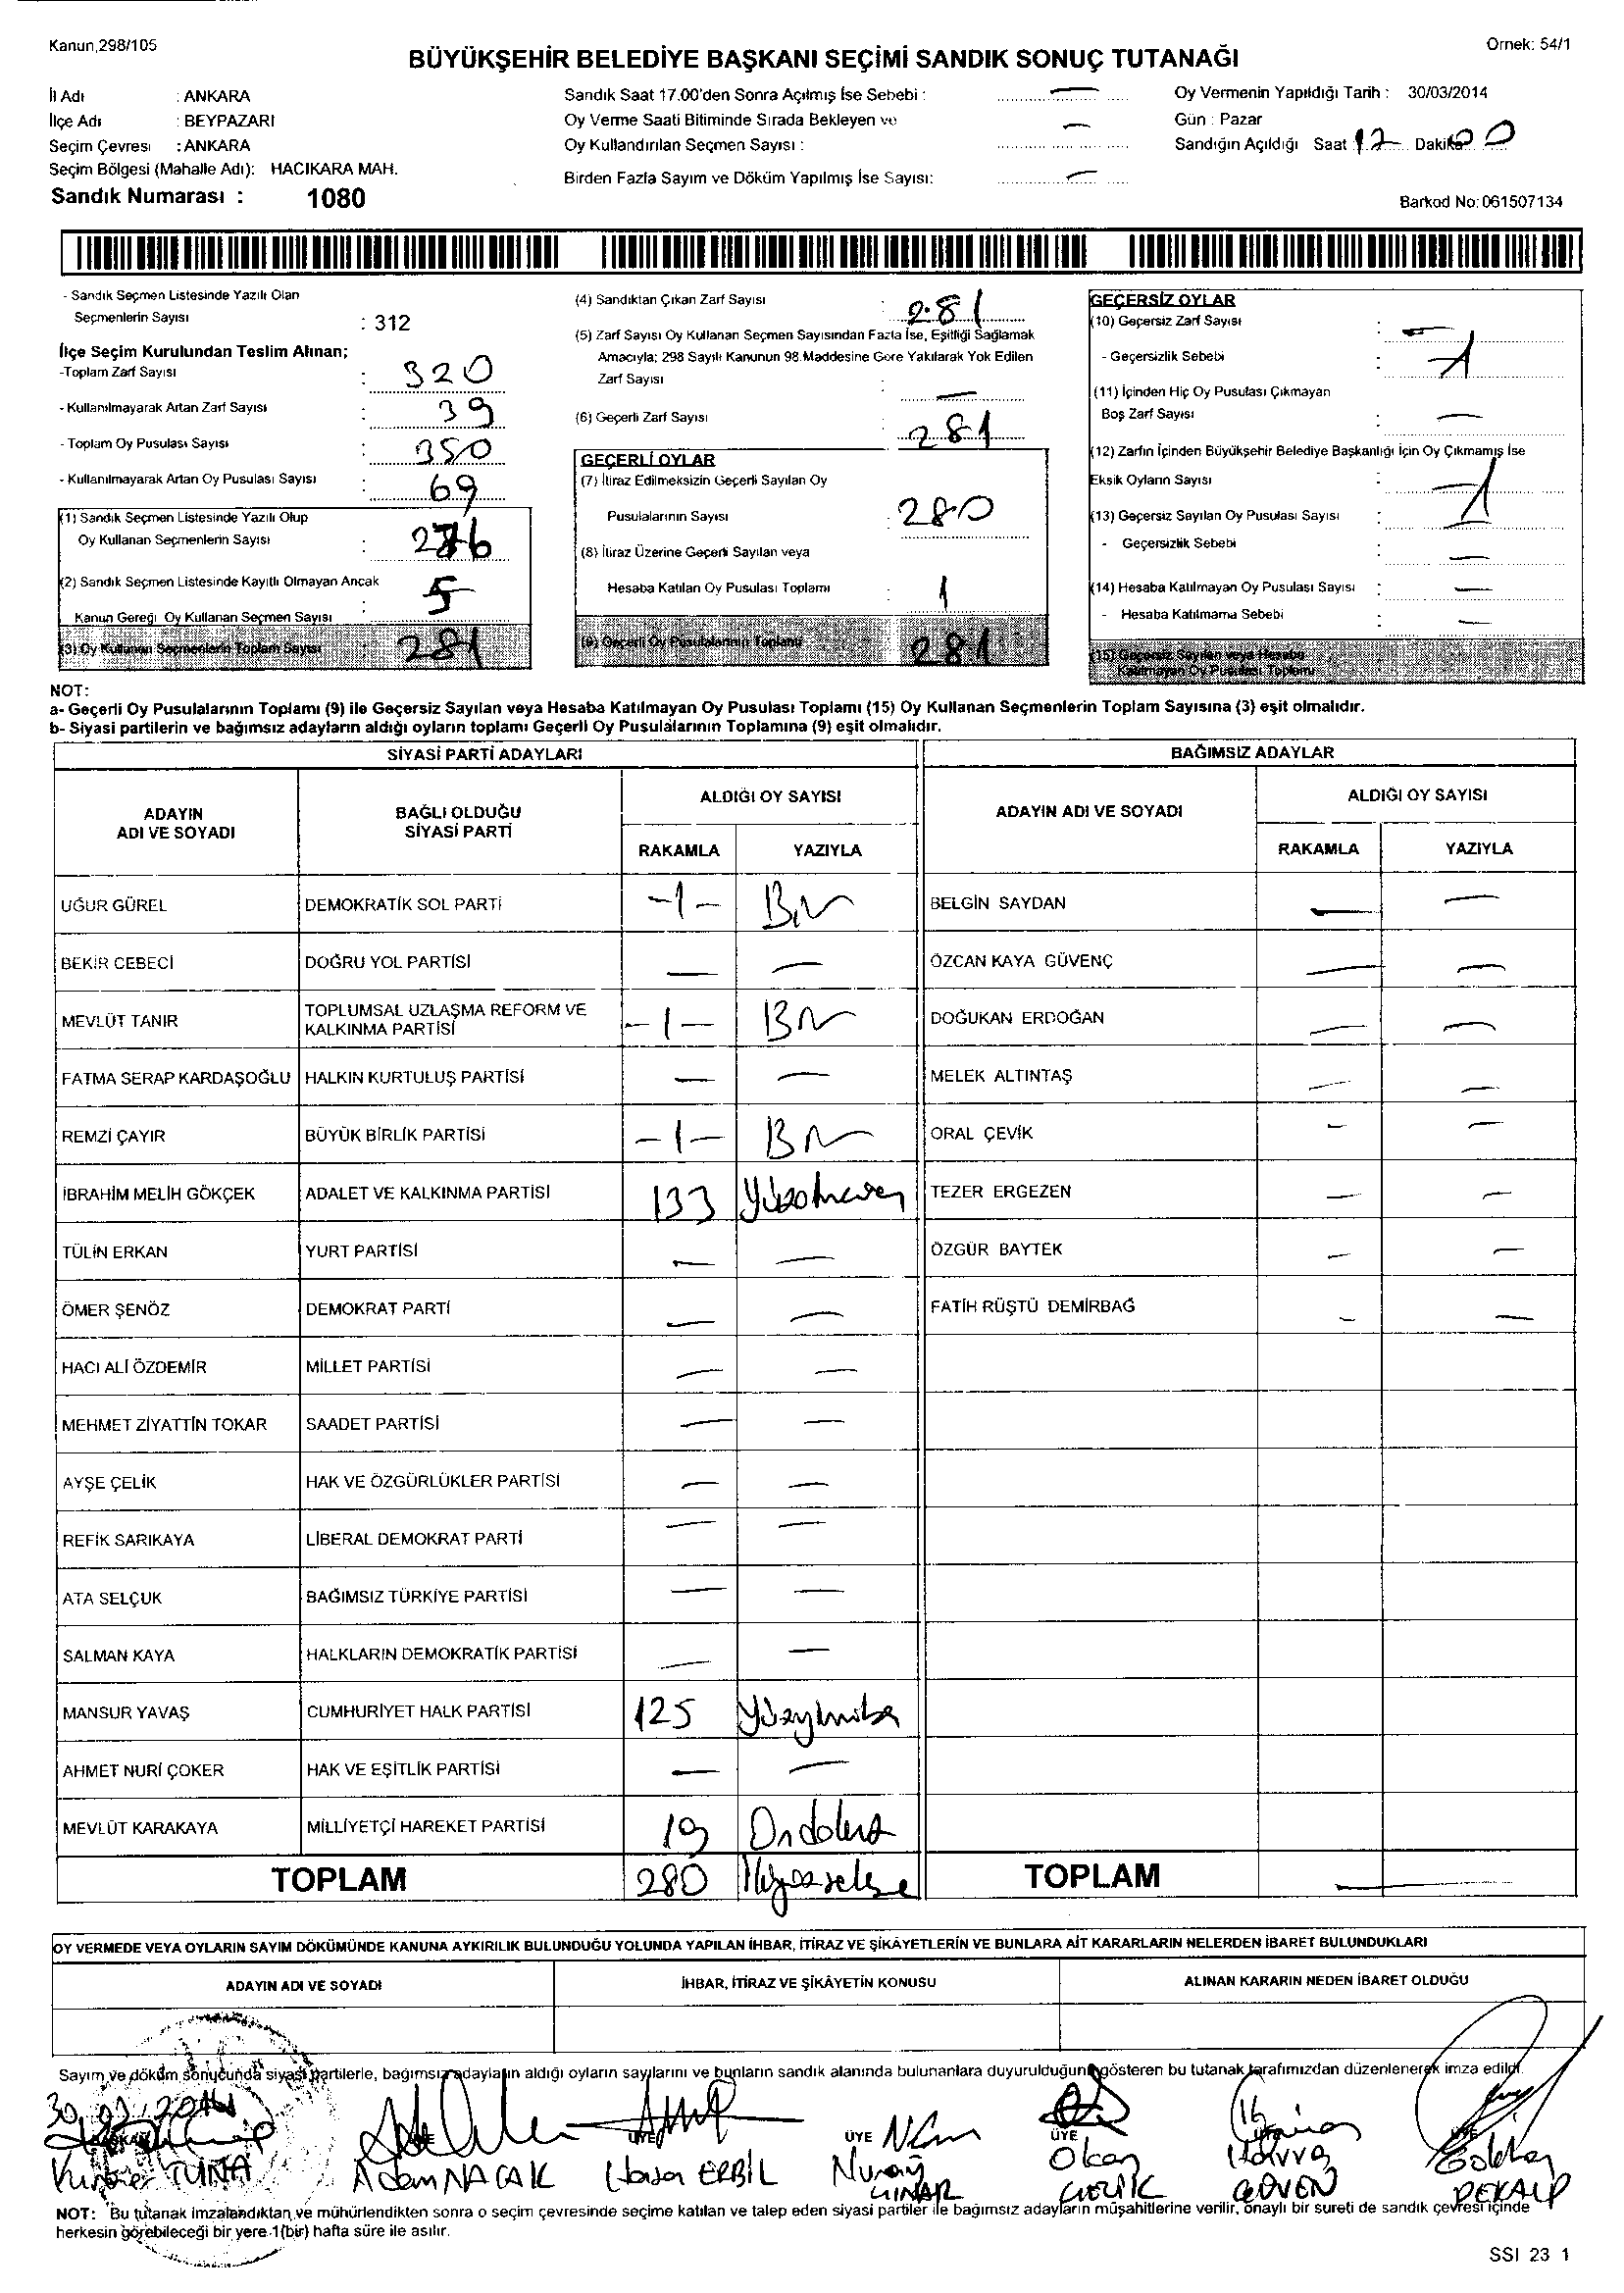 Kanun,298/105
Örnek: 54/1
BÜYÜKŞEHİR BELEDİYE BAŞKANI SEÇİMİ SANDIK SONUÇ TUTANAĞI
İl Adı : ANKARA
İlçe Adı : BEYPAZARI
Seçim Çevresi : ANKARA
Seçim Bölgesi (Mahalle Adı): HACIKARA MAH.
Sandık Numarası : 1080
Sandık Saat 17.00'den Sonra Açılmış İse Sebebi : —
Oy Verme Saati Bitiminde Sırada Bekleyen ve
Oy Kullandırılan Seçmen Sayısı : —
Birden Fazla Sayım ve Döküm Yapılmış İse Sayısı: —
Oy Vermenin Yapıldığı Tarih : 30/03/2014
Gün : Pazar
Sandığın Açıldığı Saat 17 Dakika 00
Barkod No: 061507134
- Sandık Seçmen Listesinde Yazılı Olan
Seçmenlerin Sayısı : 312
İlçe Seçim Kurulundan Teslim Alınan;
-Toplam Zarf Sayısı : 320
- Kullanılmayarak Artan Zarf Sayısı : 39
- Toplam Oy Pusulası Sayısı : 350
- Kullanılmayarak Artan Oy Pusulası Sayısı : 69
(1) Sandık Seçmen Listesinde Yazılı Olup
Oy Kullanan Seçmenlerin Sayısı : 276
(2) Sandık Seçmen Listesinde Kayıtlı Olmayan Ancak
Kanun Gereği Oy Kullanan Seçmen Sayısı : 5
(3) Oy Kullanan Seçmenlerin Toplam Sayısı 281
(4) Sandıktan Çıkan Zarf Sayısı : 281
(5) Zarf Sayısı Oy Kullanan Seçmen Sayısından Fazla İse, Eşitliği Sağlamak
Amacıyla; 298 Sayılı Kanunun 98.Maddesine Göre Yakılarak Yok Edilen
Zarf Sayısı : —
(6) Geçerli Zarf Sayısı : 281
GEÇERLİ OYLAR
(7) İtiraz Edilmeksizin Geçerli Sayılan Oy
Pusulalarının Sayısı : 280
(8) İtiraz Üzerine Geçerli Sayılan veya
Hesaba Katılan Oy Pusulası Toplamı : 1
(9) Geçerli Oy Pusulalarının Toplamı 281
GEÇERSİZ OYLAR
(10) Geçersiz Zarf Sayısı : —
- Geçersizlik Sebebi : 1
(11) İçinden Hiç Oy Pusulası Çıkmayan
Boş Zarf Sayısı : —
(12) Zarfın İçinden Büyükşehir Belediye Başkanlığı İçin Oy Çıkmamış İse
Eksik Oyların Sayısı : 1
(13) Geçersiz Sayılan Oy Pusulası Sayısı :
- Geçersizlik Sebebi : —
(14) Hesaba Katılmayan Oy Pusulası Sayısı : —
- Hesaba Katılmama Sebebi : —
(15) Geçersiz Sayılan veya Hesaba
Katılmayan Oy Pusulası Toplamı
NOT:
a- Geçerli Oy Pusulalarının Toplamı (9) ile Geçersiz Sayılan veya Hesaba Katılmayan Oy Pusulası Toplamı (15) Oy Kullanan Seçmenlerin Toplam Sayısına (3) eşit olmalıdır.
b- Siyasi partilerin ve bağımsız adayların aldığı oyların toplamı Geçerli Oy Pusulalarının Toplamına (9) eşit olmalıdır.
SİYASİ PARTİ ADAYLARI
BAĞIMSIZ ADAYLAR
ADAYIN ADI VE SOYADI
BAĞLI OLDUĞU SİYASİ PARTİ
ALDIĞI OY SAYISI
RAKAMLA YAZIYLA
ADAYIN ADI VE SOYADI
ALDIĞI OY SAYISI
RAKAMLA YAZIYLA
UĞUR GÜREL DEMOKRATİK SOL PARTİ -1- Bir BELGİN SAYDAN — —
BEKİR CEBECİ DOĞRU YOL PARTİSİ — — ÖZCAN KAYA GÜVENÇ — —
MEVLÜT TANIR TOPLUMSAL UZLAŞMA REFORM VE KALKINMA PARTİSİ -1- Bir DOĞUKAN ERDOĞAN — —
FATMA SERAP KARDAŞOĞLU HALKIN KURTULUŞ PARTİSİ — — MELEK ALTINTAŞ — —
REMZİ ÇAYIR BÜYÜK BİRLİK PARTİSİ -1- Bir ORAL ÇEVİK — —
İBRAHİM MELİH GÖKÇEK ADALET VE KALKINMA PARTİSİ 133 TEZER ERGEZEN — —
TÜLİN ERKAN YURT PARTİSİ — — ÖZGÜR BAYTEK — —
ÖMER ŞENÖZ DEMOKRAT PARTİ — — FATİH RÜŞTÜ DEMİRBAĞ — —
HACI ALİ ÖZDEMİR MİLLET PARTİSİ — —
MEHMET ZİYATTİN TOKAR SAADET PARTİSİ — —
AYŞE ÇELİK HAK VE ÖZGÜRLÜKLER PARTİSİ — —
REFİK SARIKAYA LİBERAL DEMOKRAT PARTİ — —
ATA SELÇUK BAĞIMSIZ TÜRKİYE PARTİSİ — —
SALMAN KAYA HALKLARIN DEMOKRATİK PARTİSİ — —
MANSUR YAVAŞ CUMHURİYET HALK PARTİSİ 125
AHMET NURİ ÇOKER HAK VE EŞİTLİK PARTİSİ — —
MEVLÜT KARAKAYA MİLLİYETÇİ HAREKET PARTİSİ 19
TOPLAM 280 TOPLAM —
OY VERMEDE VEYA OYLARIN SAYIM DÖKÜMÜNDE KANUNA AYKIRILIK BULUNDUĞU YOLUNDA YAPILAN İHBAR, İTİRAZ VE ŞİKÂYETLERİN VE BUNLARA AİT KARARLARIN NELERDEN İBARET BULUNDUKLARI
ADAYIN ADI VE SOYADI İHBAR, İTİRAZ VE ŞİKÂYETİN KONUSU ALINAN KARARIN NEDEN İBARET OLDUĞU
Sayım ve döküm sonucunda siyasi partilerle, bağımsız adayların aldığı oyların sayılarını ve bunların sandık alanında bulunanlara duyurulduğunu gösteren bu tutanak tarafımızdan düzenlenerek imza edildi.
30.03.2014
ÜYE ÜYE ÜYE
TUNA Adem NACAK Hasan ERBİL Nuray ÇINAR Okan ÇELİK Havva GÜVEN Gökhan PEKALP
NOT: Bu tutanak imzalandıktan ve mühürlendikten sonra o seçim çevresinde seçime katılan ve talep eden siyasi partiler ile bağımsız adayların müşahitlerine verilir, onaylı bir sureti de sandık çevresi içinde
herkesin görebileceği bir yere 1(bir) hafta süre ile asılır.
SSI 23 1